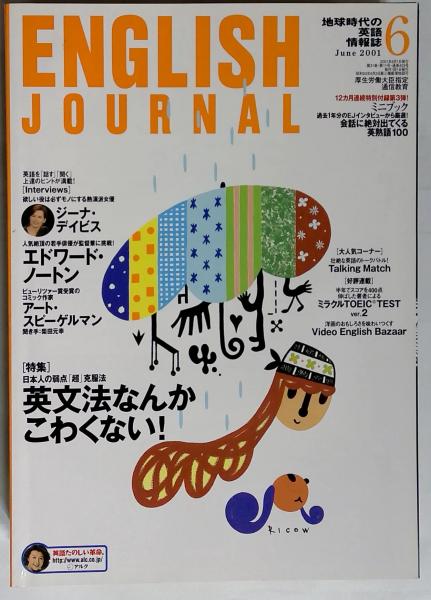 ENGLISH
JOURNAL
地球時代の
英語
情報誌
6
June 2001
厚生労働大臣指定
通信教育
12カ月連続特別付録第3弾!
ミニブック
過去1年分のEJインタビューから厳選!
会話に絶対出てくる
英熟語100
英語を「話す」「聞く」
上達のヒントが満載!
[Interviews]
欲しい役は必ずモノにする熱演派女優
ジーナ・
デイビス
人気絶頂の若手俳優が監督業に挑戦!
エドワード・
ノートン
ピューリツァー賞受賞の
コミック作家
アート・
スピーゲルマン
聞き手:柴田元幸
[大人気コーナー]
壮絶な英語のトークバトル!
Talking Match
[好評連載]
半年でスコアを400点
伸ばした著者による
ミラクルTOEIC®TEST
ver.2
洋画のおもしろさを味わいつくす
Video English Bazaar
[特集]
日本人の弱点「超」克服法
英文法なんか
こわくない!
RICOW
英語たのしい革命。
http://www.alc.co.jp/
アルク